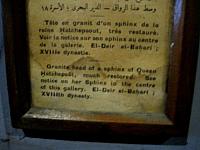 وسط هذا الرواق - الدير البحرى؛ الأسرة ١٨
Tête en granit d'un sphinx de la
reine Hatchepsout, très restauré.
Voir la notice sur son sphinx au centre
de la galerie. El-Deir el-Bahari;
XVIIIe dynastie.
Granite head of a sphinx of Queen
Hatchepsuit, much restored. See
notice on her Sphinx in the centre
of this gallery. El-Deir el-Bahari;
XVIIIth dynasty.